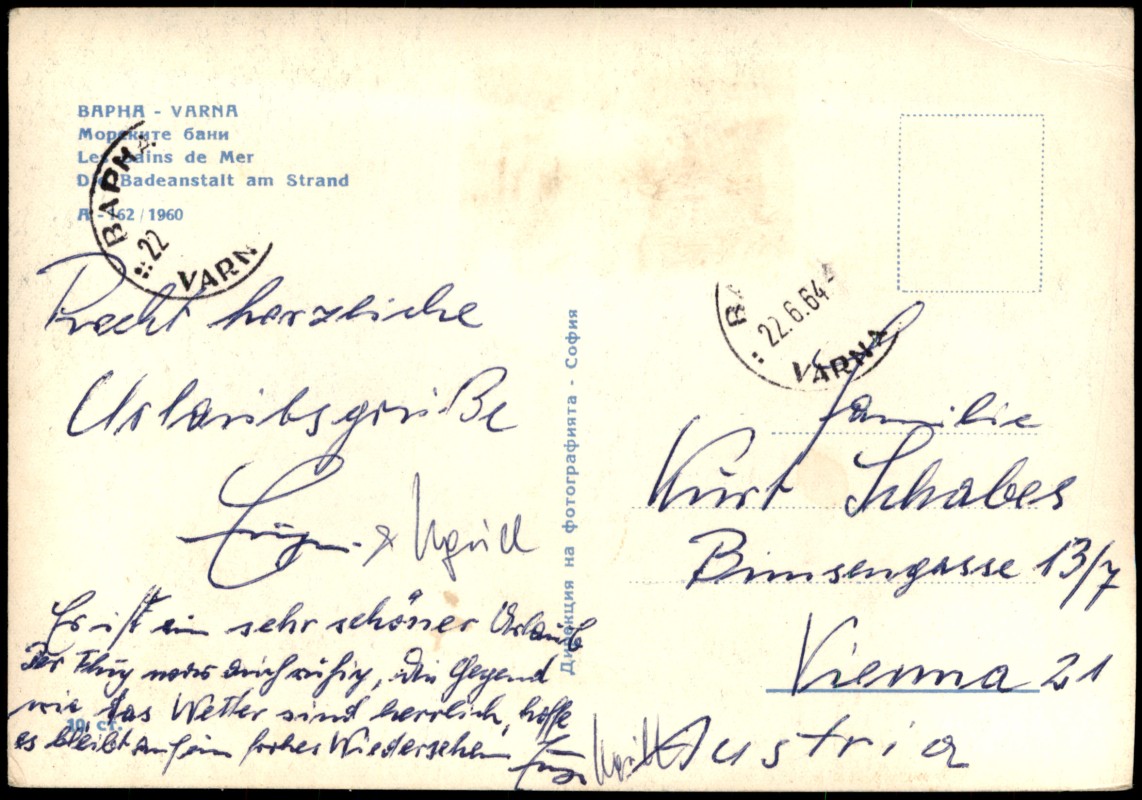 ВАРНА - VARNA
Морските бани
Les Bains de Mer
Die Badeanstalt am Strand
A - 162 / 1960
ВАРНА
22
VARN
Recht herzliche
Urlaubsgrüße
&
Es ist ein sehr schöner Urlaub
Der Flug war auch ruhig, die Gegend
wie das Wetter sind herrlich, hoffe
es bleibt auf ein frohes Wiedersehen
10 ст.
Дирекция на фотографията - София
ВА
22.6.64
VARNA
Familie
Kurt Schabes
Bimsengasse 13/7
Vienna 21
Austria